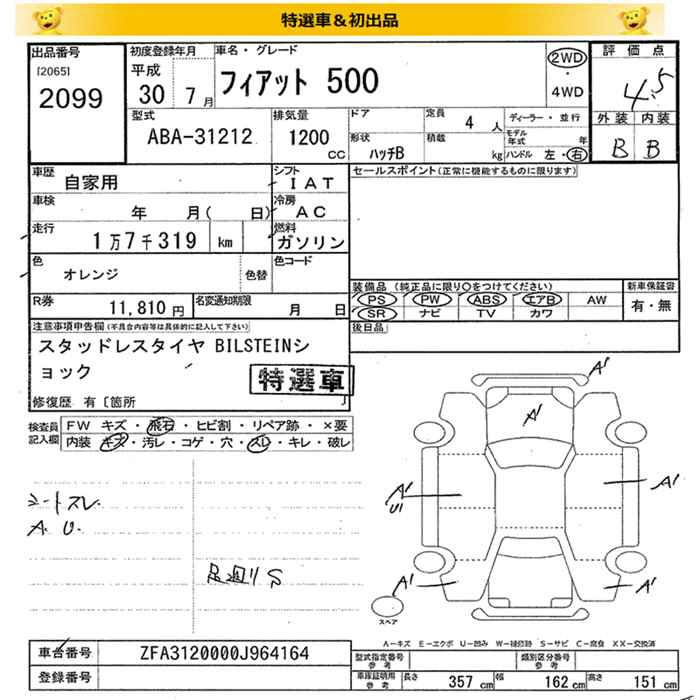 特選車＆初出品
出品番号
[2065]
2099
初度登録年月
平成
30 7月
車名・グレード
フィアット 500
2WD
・
4WD
評価点
4.5
外装 内装
B B
型式
ABA-31212
排気量
1200
cc
ドア
形状
ハッチB
定員
4 人
積載
kg
ディーラー・並行
モデル年式 年
ハンドル 左・右
車歴
自家用
シフト
IAT
車検
年 月( 日)
冷房
AC
走行
1万7千319 km
燃料
ガソリン
色
オレンジ
色替
色コード
R券
11,810 円
名変通知期限
月 日
セールスポイント(正常に機能するものに限ります)
装備品 (純正品に限り○をつけてください)
PS PW ABS エアB AW
SR ナビ TV カワ
新車保証書
有・無
後日品
注意事項申告欄(不具合内容等は具体的に記入して下さい)
スタッドレスタイヤ BILSTEINシ
ョック
特選車
修復歴 有 [箇所 ]
検査員
記入欄
FW キズ・飛石・ヒビ割・リペア跡・×要
内装 キズ・汚レ・コゲ・穴・スレ・キレ・破レ
シートスレ
A. U.
足廻りS
A1
A1
A1
U1
A1
A1
A1
スペア
A－キズ E－エクボ U－凹み W－補修跡 S－サビ C－腐食 XX－交換済
車台番号
ZFA3120000J964164
登録番号
型式指定番号
参考
類別区分番号
参考
車庫証明用
参考
長さ 357 cm 幅 162 cm 高さ 151 cm